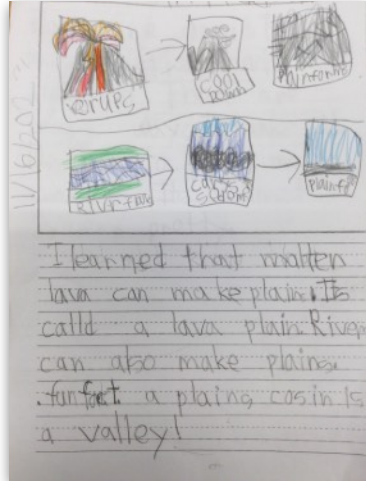 erups
cool
down
plain form
11/6/202
river flow
carrys
plain f
I learned that molten
lava can make plain. Its
calld a lava plain. River
can also make plains.
.fun fact. a plains cosin Is
a valley!